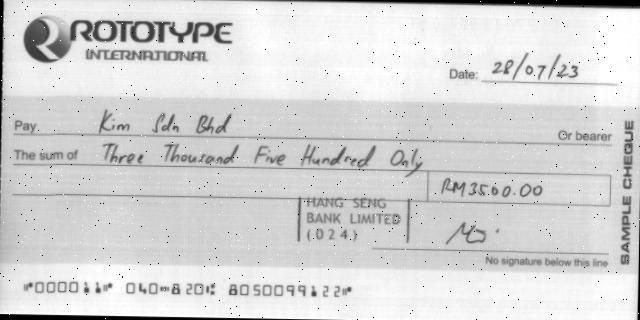 ROTOTYPE
INTERNATIONAL
Date: 28/07/23
Pay Kim Sdn Bhd Or bearer
The sum of Three Thousand Five Hundred Only
RM3500.00
HANG SENG
BANK LIMITED
(.024.)
No signature below this line
SAMPLE CHEQUE
⑈000011⑈ 040⑉820⑆ 8050099122⑈